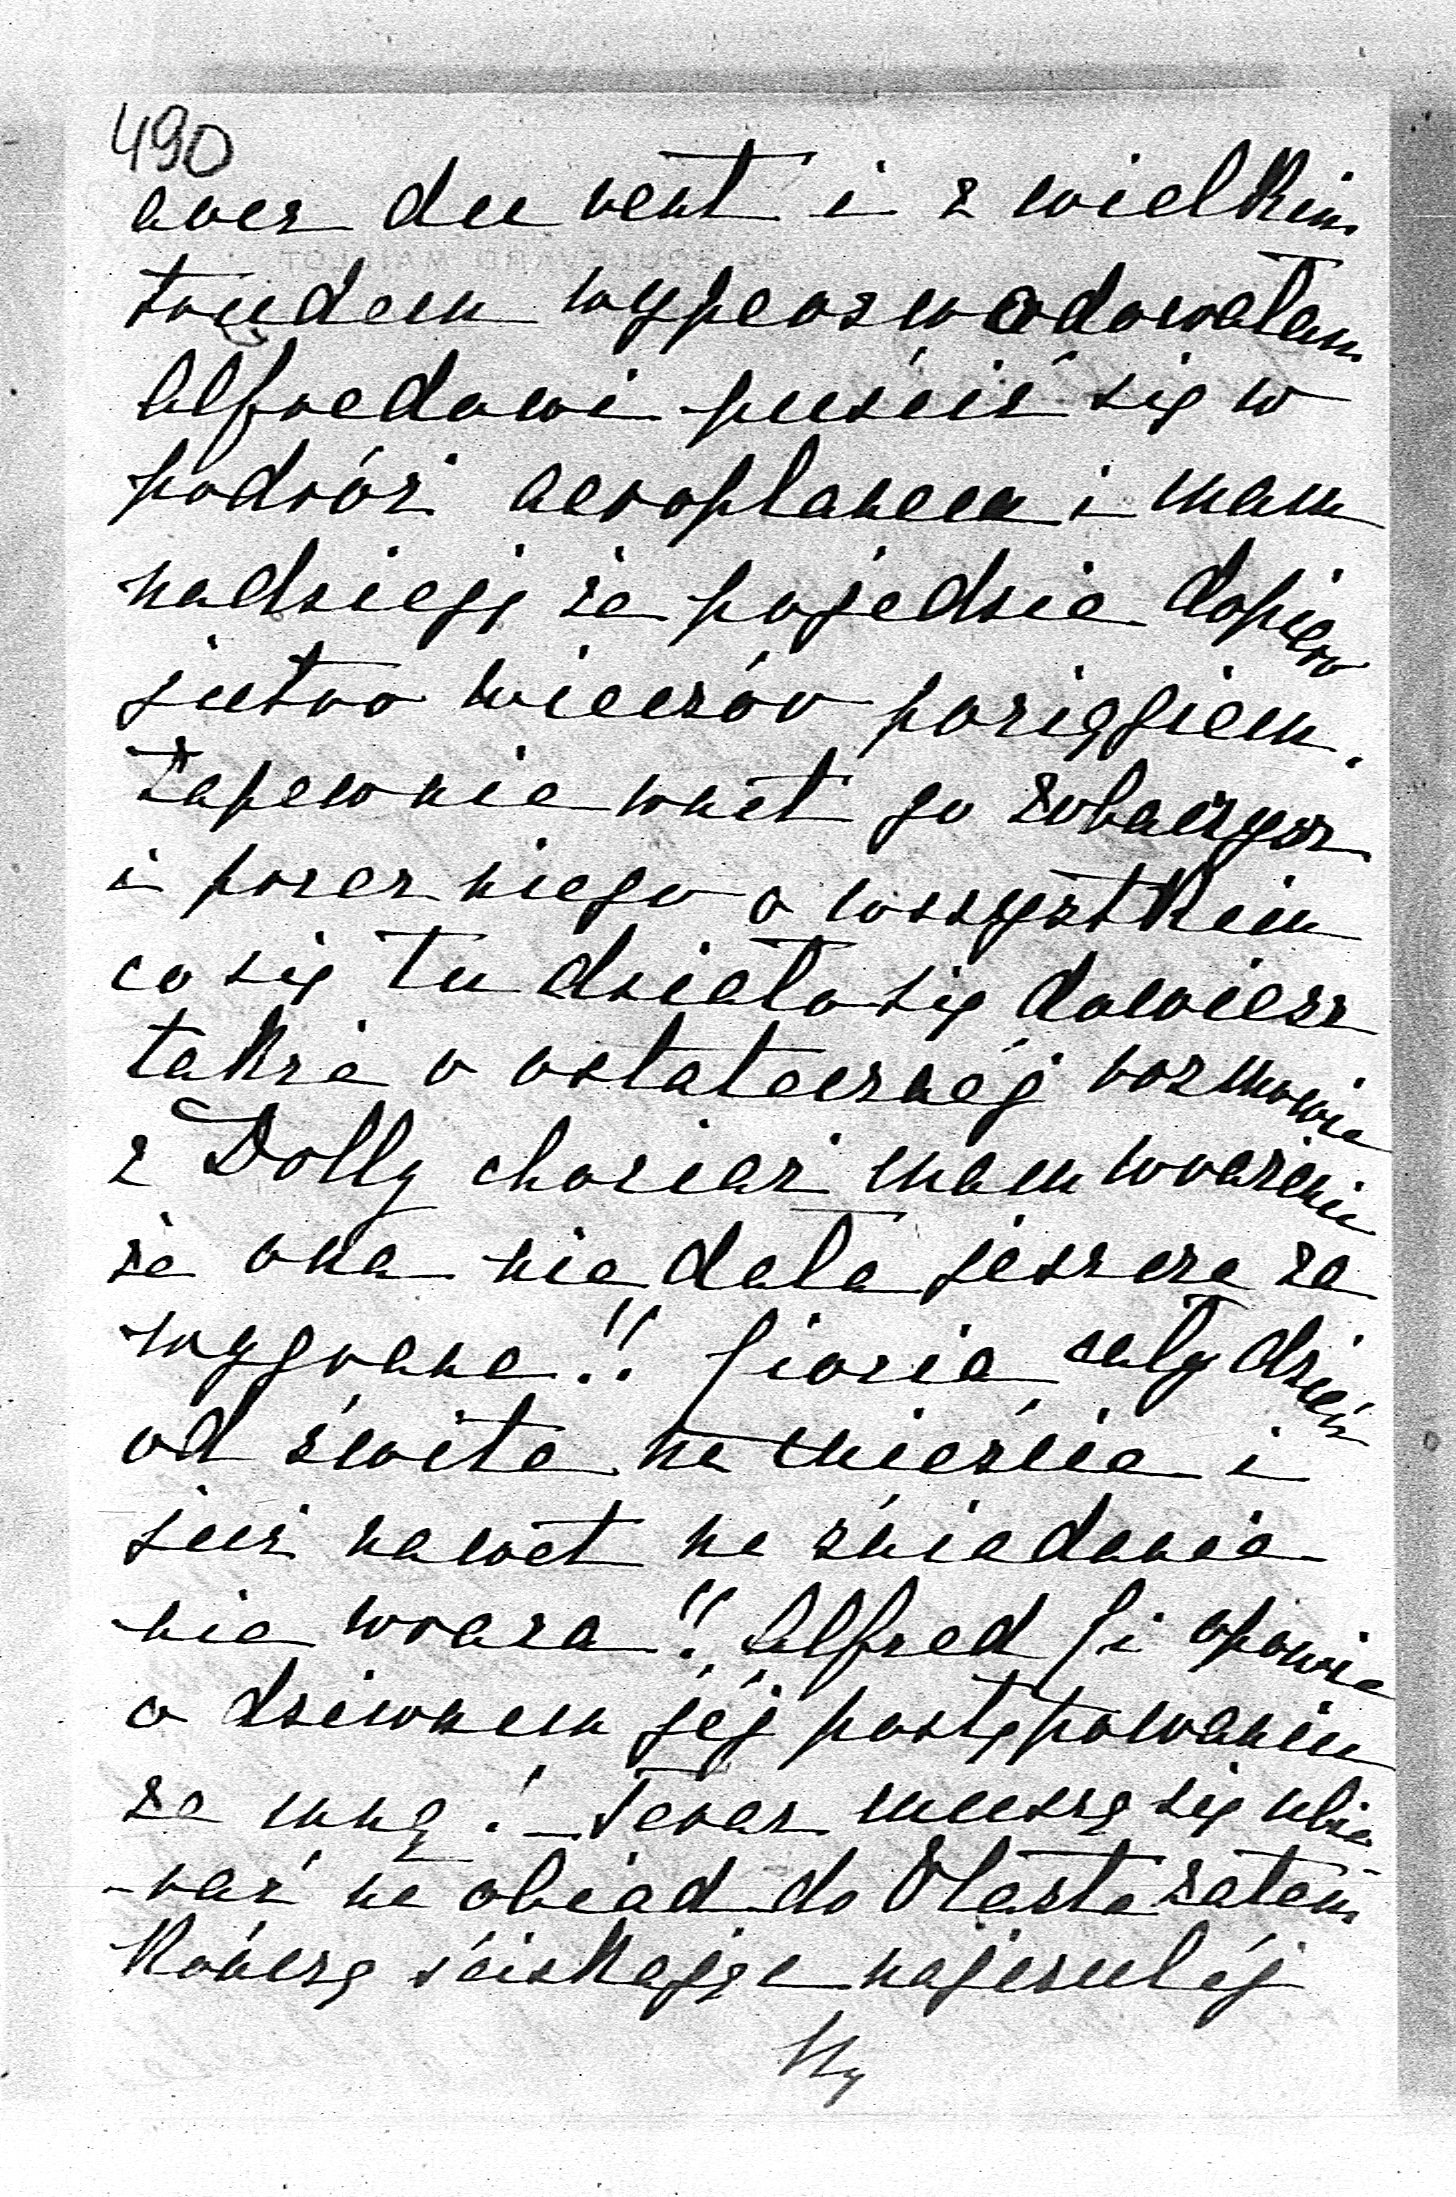 490
avec du vent i z wielkim
trudem wyperswadowałam
Alfredowi puścić się w
podróż aeroplanem i mam
nadzieję że pojedzie dopiero
jutro wieczór pociągiem.
Zapewnie wnet go zobaczysz
i przez niego o wszystkiem
co się tu działo się dowiesz
także o ostatecznéj rozmowie
z Dolly chociaż mam wrażenie
że ona nie dała jeszcze za
wygrane!! Jiozia cały dzień
od świta na mieście i
już nawet na śniadanie
nie wraca!! Alfred Ji opowie
o dziwnem jéj postępowaniu
ze mną! – Teraz muszę się ubie
-rać na obiad do Vlasta zatem
kończę ściskając najczuléj